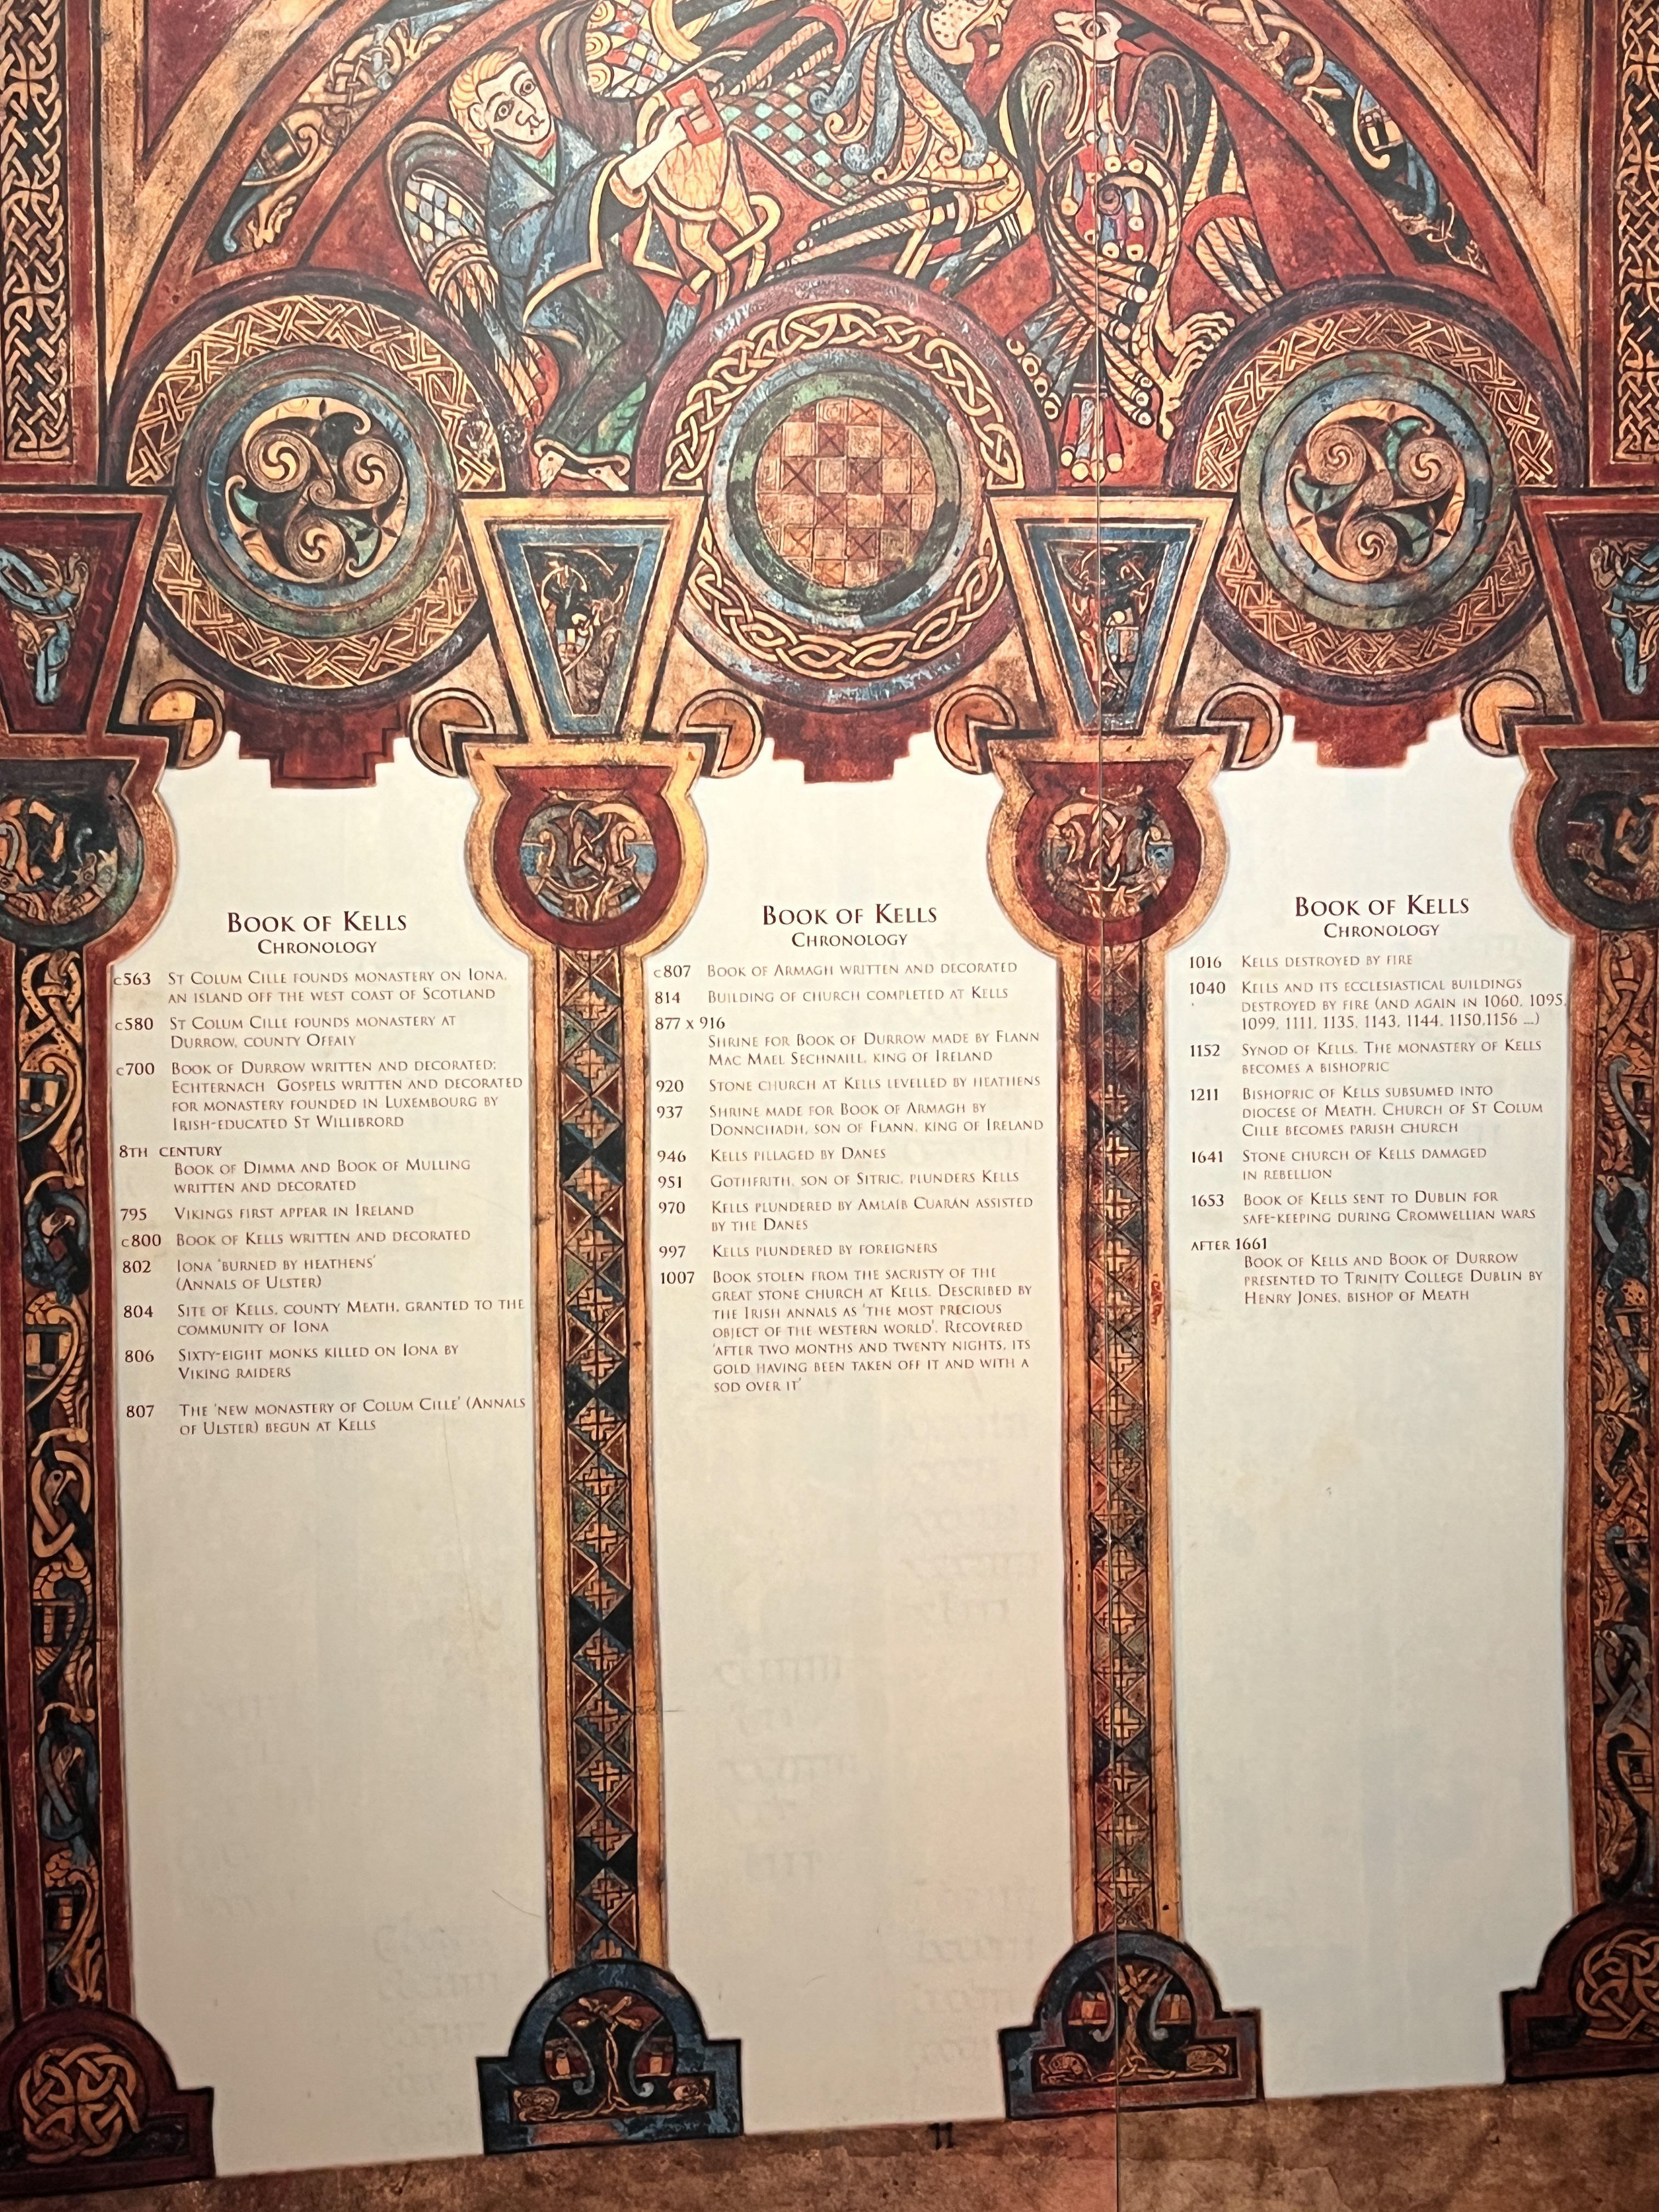 BOOK OF KELLS
CHRONOLOGY
c563 ST COLUM CILLE FOUNDS MONASTERY ON IONA,
AN ISLAND OFF THE WEST COAST OF SCOTLAND
c580 ST COLUM CILLE FOUNDS MONASTERY AT
DURROW, COUNTY OFFALY
c700 BOOK OF DURROW WRITTEN AND DECORATED;
ECHTERNACH GOSPELS WRITTEN AND DECORATED
FOR MONASTERY FOUNDED IN LUXEMBOURG BY
IRISH-EDUCATED ST WILLIBRORD
8TH CENTURY
BOOK OF DIMMA AND BOOK OF MULLING
WRITTEN AND DECORATED
795 VIKINGS FIRST APPEAR IN IRELAND
c800 BOOK OF KELLS WRITTEN AND DECORATED
802 IONA 'BURNED BY HEATHENS'
(ANNALS OF ULSTER)
804 SITE OF KELLS, COUNTY MEATH, GRANTED TO THE
COMMUNITY OF IONA
806 SIXTY-EIGHT MONKS KILLED ON IONA BY
VIKING RAIDERS
807 THE 'NEW MONASTERY OF COLUM CILLE' (ANNALS
OF ULSTER) BEGUN AT KELLS
BOOK OF KELLS
CHRONOLOGY
c807 BOOK OF ARMAGH WRITTEN AND DECORATED
814 BUILDING OF CHURCH COMPLETED AT KELLS
877 x 916
SHRINE FOR BOOK OF DURROW MADE BY FLANN
MAC MAEL SECHNAILL, KING OF IRELAND
920 STONE CHURCH AT KELLS LEVELLED BY HEATHENS
937 SHRINE MADE FOR BOOK OF ARMAGH BY
DONNCHADH, SON OF FLANN, KING OF IRELAND
946 KELLS PILLAGED BY DANES
951 GOTHFRITH, SON OF SITRIC, PLUNDERS KELLS
970 KELLS PLUNDERED BY AMLAÍB CUARÁN ASSISTED
BY THE DANES
997 KELLS PLUNDERED BY FOREIGNERS
1007 BOOK STOLEN FROM THE SACRISTY OF THE
GREAT STONE CHURCH AT KELLS. DESCRIBED BY
THE IRISH ANNALS AS 'THE MOST PRECIOUS
OBJECT OF THE WESTERN WORLD'. RECOVERED
'AFTER TWO MONTHS AND TWENTY NIGHTS, ITS
GOLD HAVING BEEN TAKEN OFF IT AND WITH A
SOD OVER IT'
BOOK OF KELLS
CHRONOLOGY
1016 KELLS DESTROYED BY FIRE
1040 KELLS AND ITS ECCLESIASTICAL BUILDINGS
DESTROYED BY FIRE (AND AGAIN IN 1060, 1095,
1099, 1111, 1135, 1143, 1144, 1150,1156 ...)
1152 SYNOD OF KELLS. THE MONASTERY OF KELLS
BECOMES A BISHOPRIC
1211 BISHOPRIC OF KELLS SUBSUMED INTO
DIOCESE OF MEATH. CHURCH OF ST COLUM
CILLE BECOMES PARISH CHURCH
1641 STONE CHURCH OF KELLS DAMAGED
IN REBELLION
1653 BOOK OF KELLS SENT TO DUBLIN FOR
SAFE-KEEPING DURING CROMWELLIAN WARS
AFTER 1661
BOOK OF KELLS AND BOOK OF DURROW
PRESENTED TO TRINITY COLLEGE DUBLIN BY
HENRY JONES, BISHOP OF MEATH